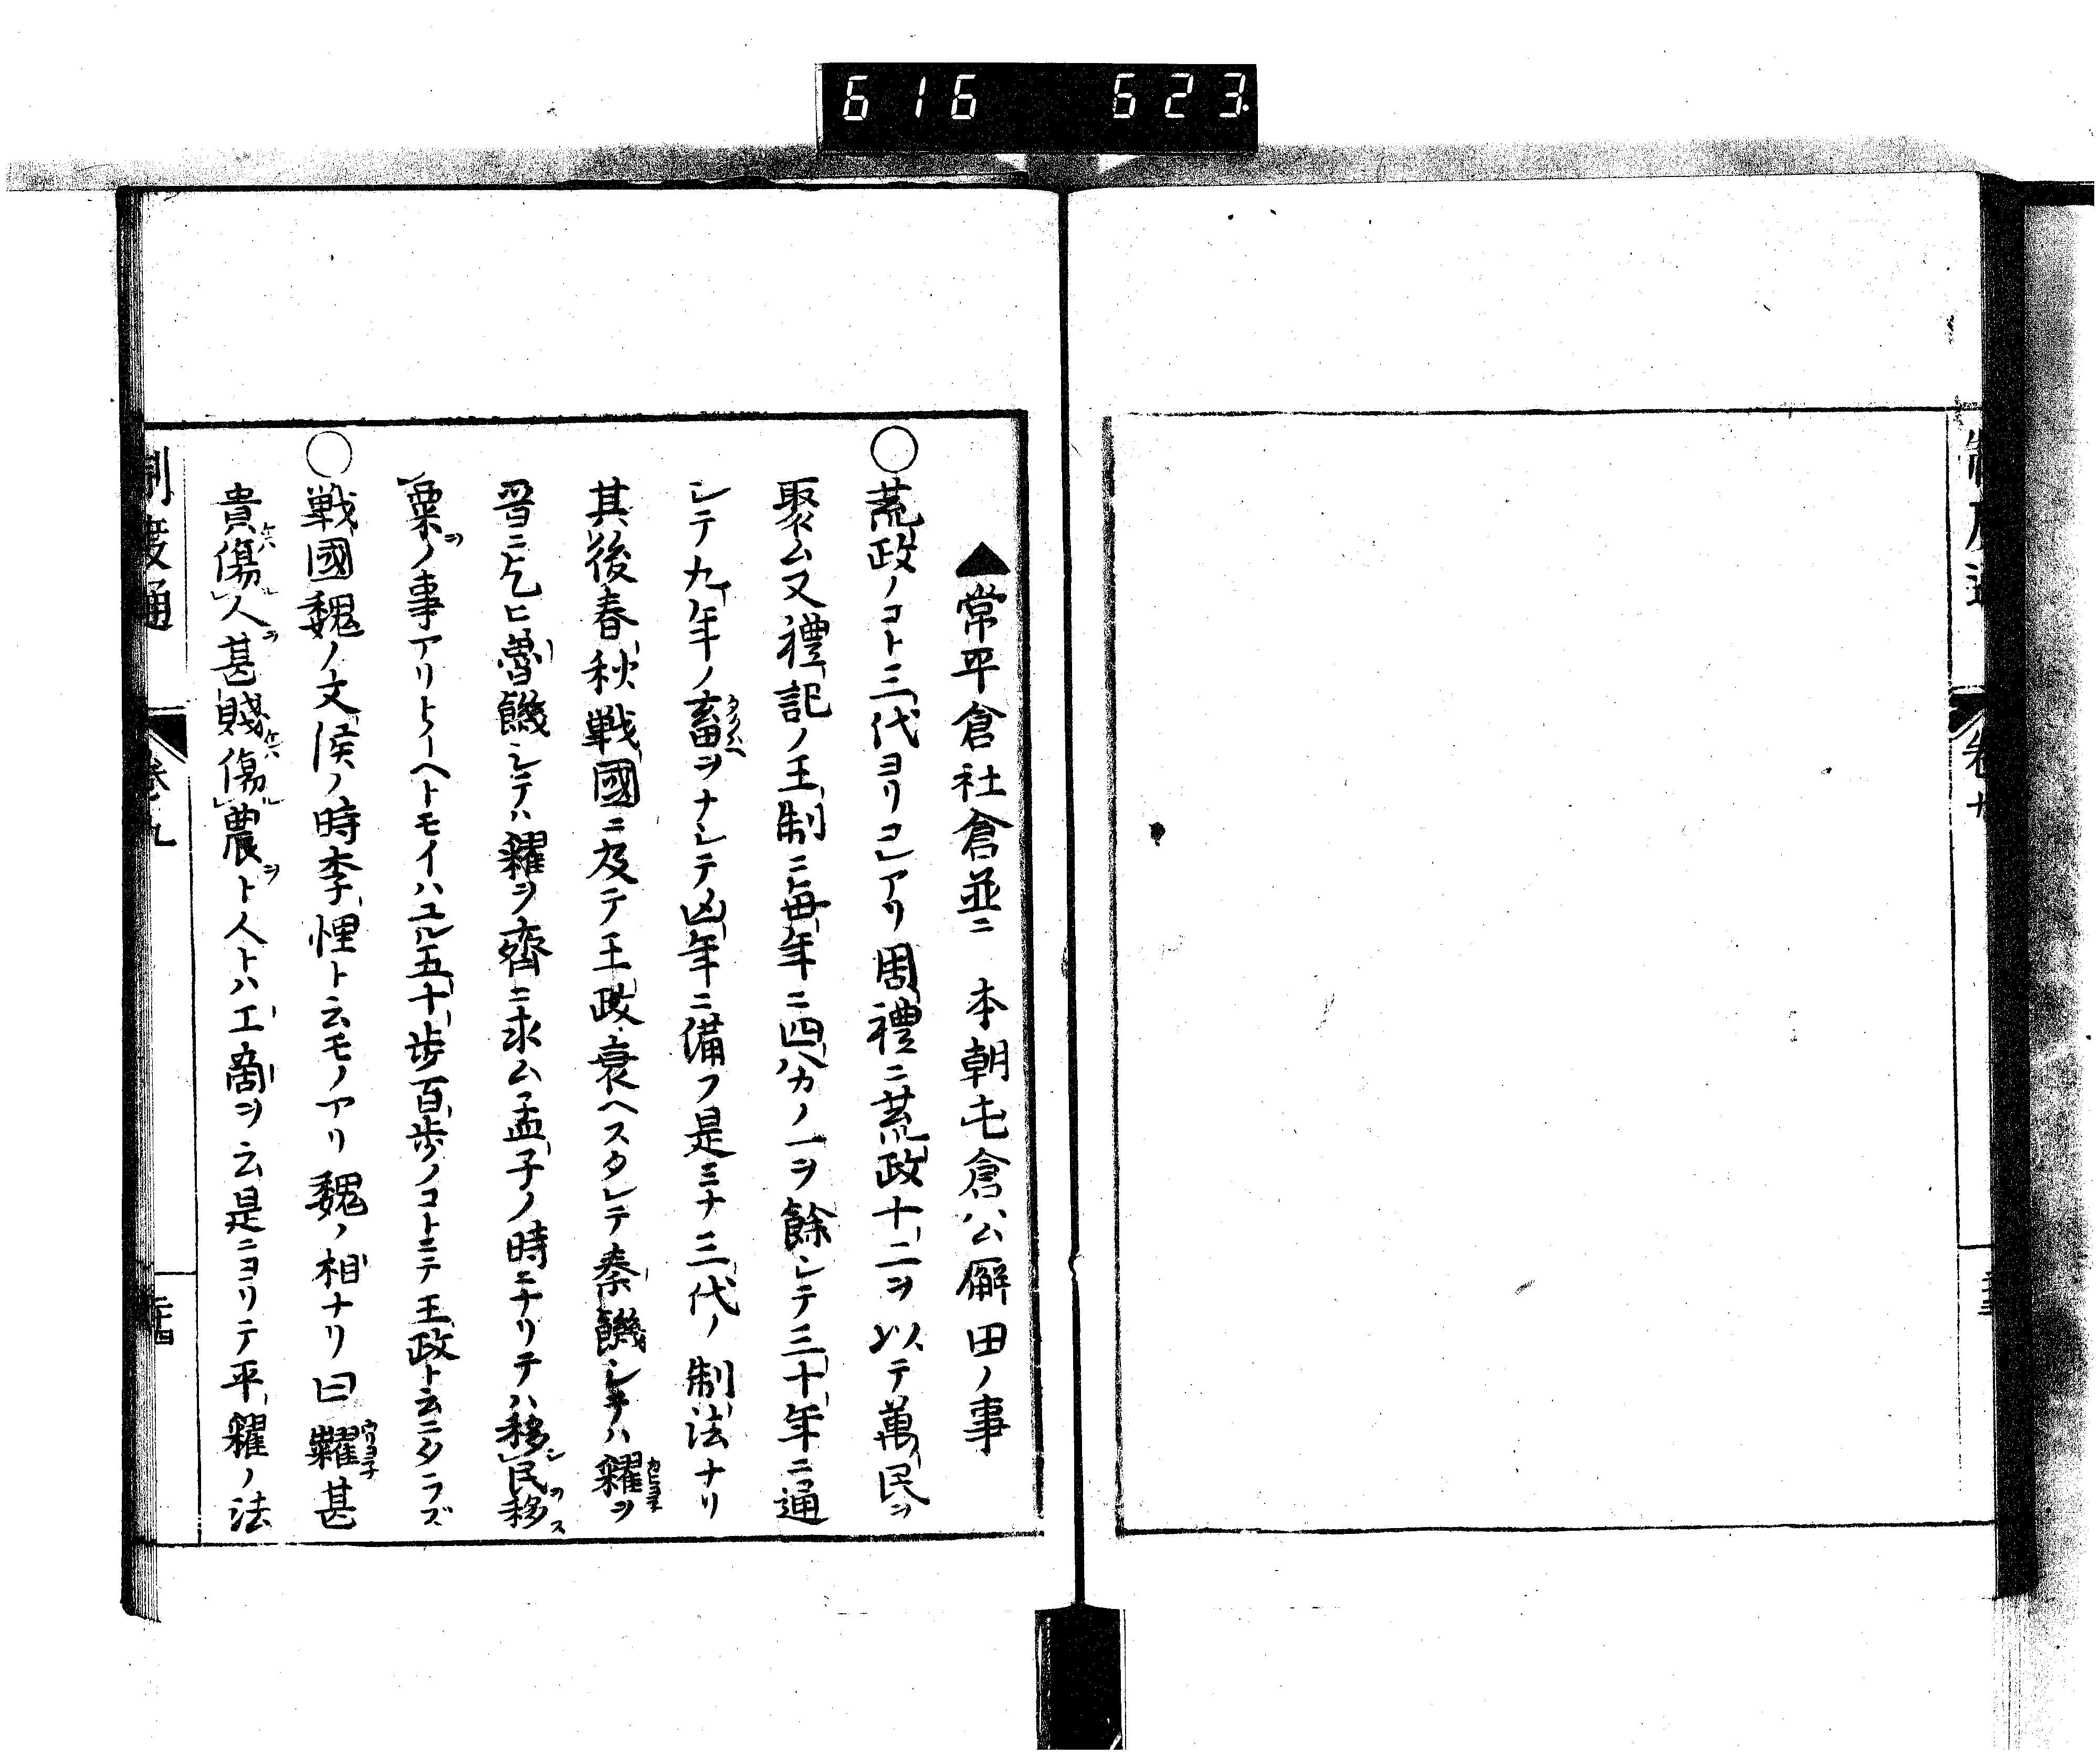 616 623
制度通 卷九
▲常平倉社倉並ニ 本朝屯倉公廨田ノ事
○荒政ノコト三代ヨリコレアリ周禮ニ荒政十二ヲ以テ萬民ヲ
聚ム又禮記ノ王制ニ毎年ニ四分カノ一ヲ餘シテ三十年ニ通
シテ九年ノ畜ヲナシテ凶年ニ備フ是ミナ三代ノ制法ナリ
其後春秋戰國ニ及テ王政衰ヘスタレテ秦饑シテハ糴ヲ
晋ニ乞ヒ魯饑シテハ糴ヲ齊ニ求ム孟子ノ時ニナリテハ移シ民ヲ移ス
粟ヲノ事アリトイヘトモイハユル五十歩百歩ノコトニテ王政ト云ニタラズ
○戰國魏ノ文侯ノ時李悝ト云モノアリ魏ノ相ナリ曰糶甚
貴傷人ヲ甚賤傷農ヲト人トハ工商ヲ云是ニヨリテ平糴ノ法
制度通 卷九